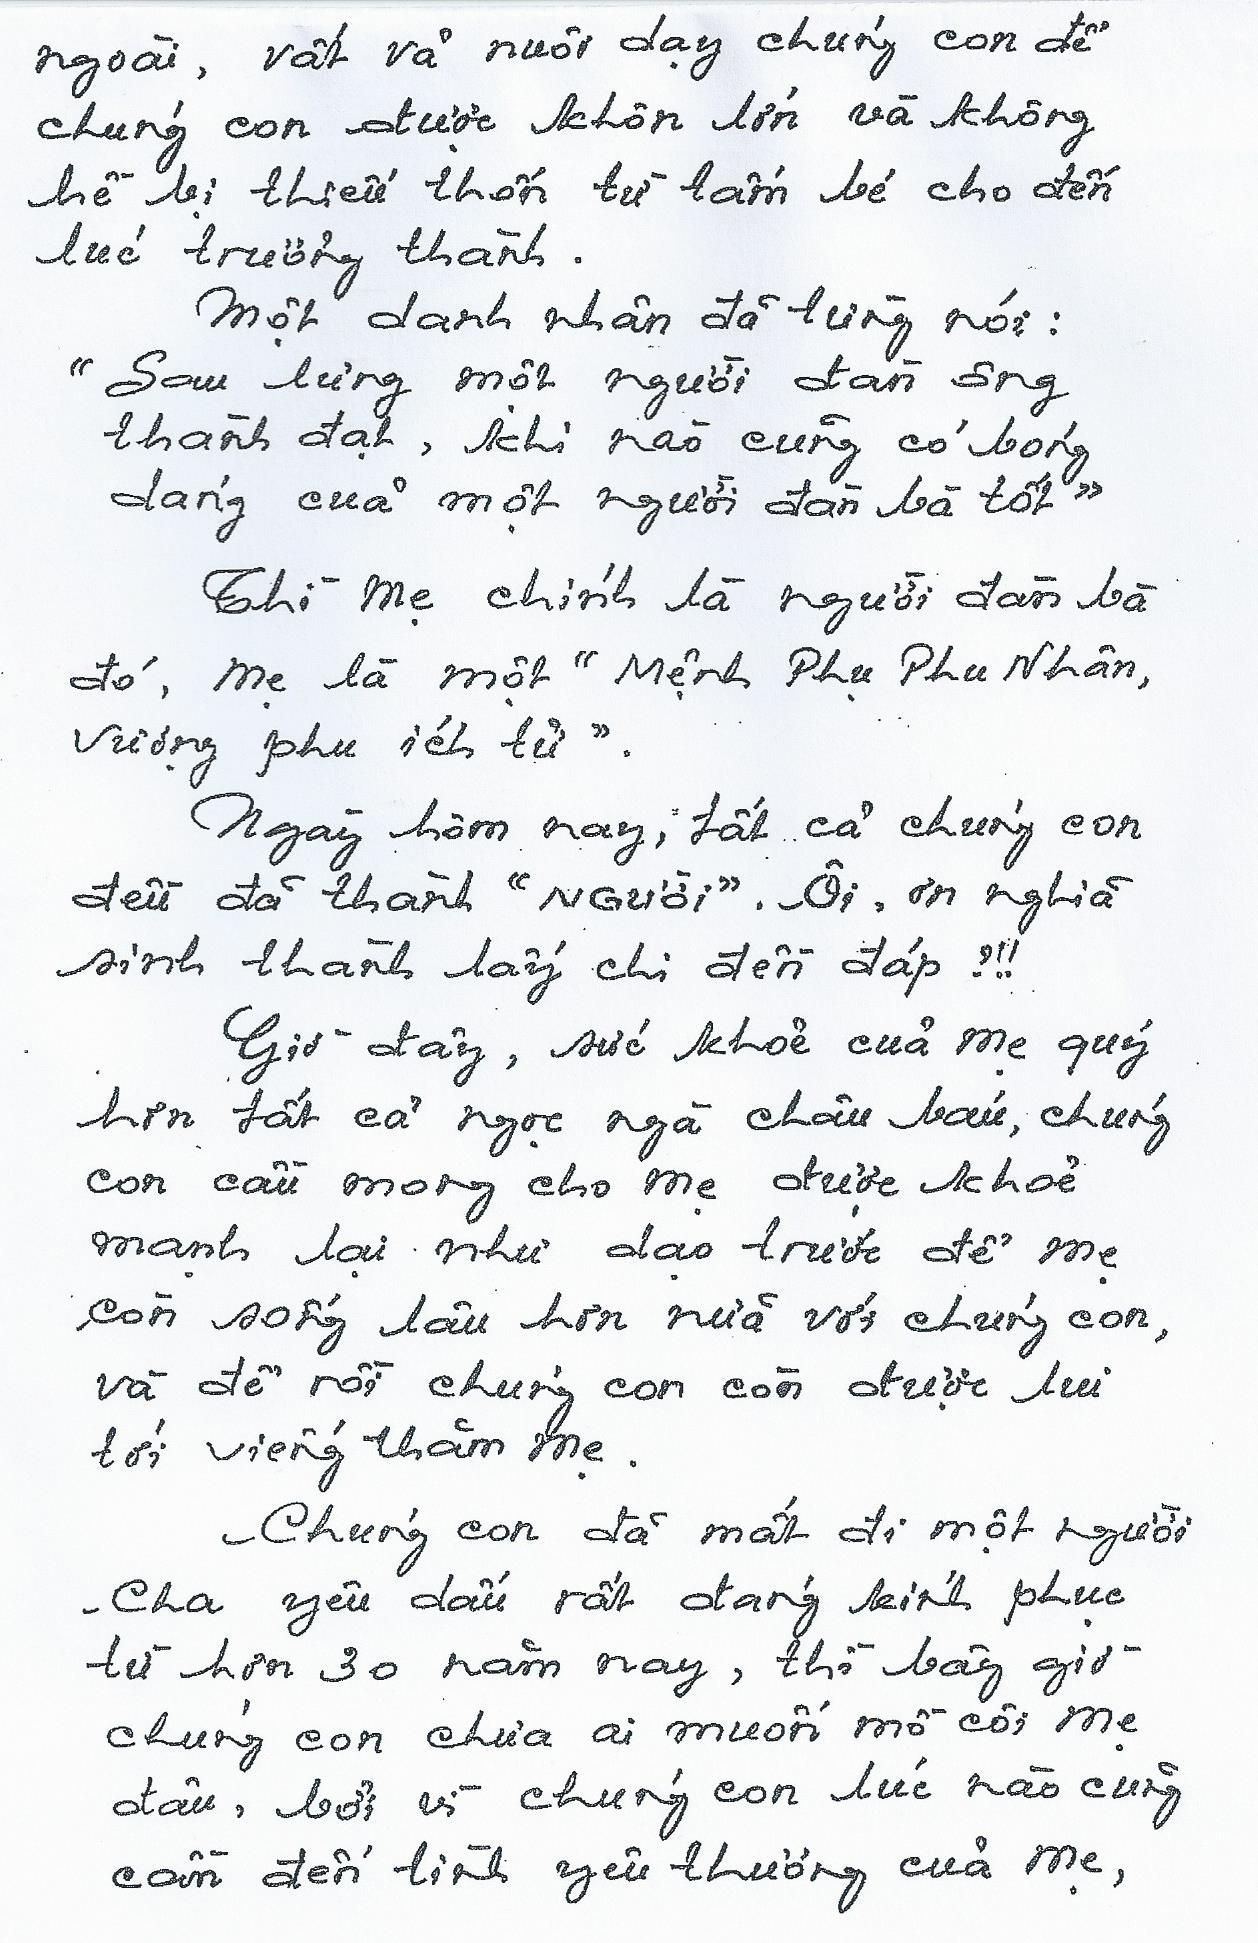 ngoài, vất vả nuôi dạy chúng con để
chúng con được khôn lớn và không
hề bị thiếu thốn từ tấm bé cho đến
lúc trưởng thành.
Một danh nhân đã từng nói:
"Sau lưng một người đàn ông
thành đạt, khi nào cũng có bóng
dáng của một người đàn bà tốt"
Thì Mẹ chính là người đàn bà
đó, Mẹ là một "Mệnh Phụ Phu Nhân,
Vượng phu ích tử".
Ngày hôm nay, tất cả chúng con
đều đã thành "NGười". Ôi, ơn nghĩa
sinh thành lấy chi đền đáp ?!!
Giờ đây, sức khoẻ của Mẹ quý
hơn tất cả ngọc ngà châu báu, chúng
con cầu mong cho Mẹ được khoẻ
mạnh lại như dạo trước để Mẹ
còn sống lâu hơn nữa với chúng con,
và để rồi chúng con còn được lui
tới viếng thăm Mẹ.
Chúng con đã mất đi một người
Cha yêu dấu rất đáng kính phục
từ hơn 30 năm nay, thì bây giờ
chúng con chưa ai muốn mồ côi Mẹ
đâu, bởi vì chúng con lúc nào cũng
cần đến tình yêu thương của Mẹ,